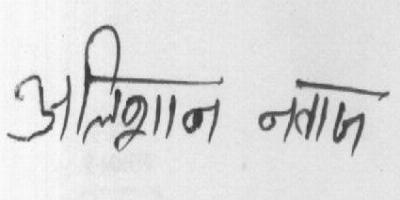 अलिशान नवाज